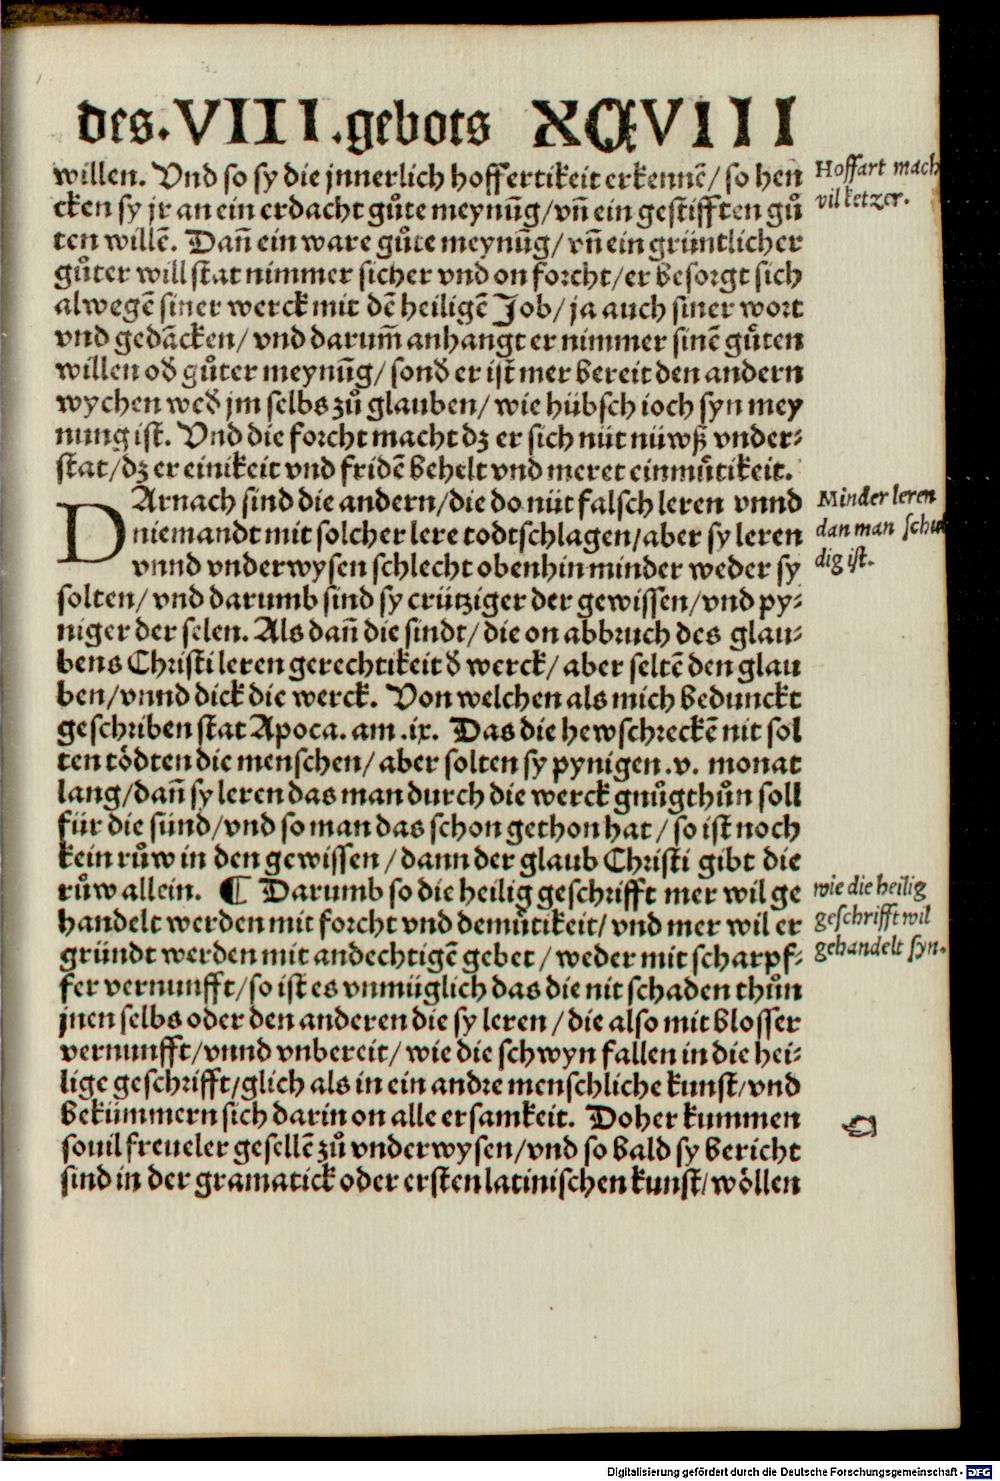 des. VIII. gebots XCVIII
willen. Vnd so sy die jnnerlich hoffertikeit erkennē/ so hen
cken sy jr an ein erdacht gůte meynūg/ vñ ein gestifften gů
ten willē. Dañ ein ware gůte meynūg/ vñ ein grüntlicher
gůter will stat nimmer sicher vnd on forcht/ er besorgt sich
alwegē siner werck mit dē heiligē Job/ ja auch siner wort
vnd gedācken/ vnd darum̄ anhangt er nimmer sinē gůten
willen od̛ gůter meynūg/ sond̛ er ist mer bereit den andern
wychen wed̛ jm selbs zů glauben/ wie hübsch ioch syn mey
nung ist. Vnd die forcht macht dz er sich nüt nüwß vnder-
stat/ dz er einikeit vnd fridē behelt vnd meret einmůtikeit.
DArnach sind die andern/ die do nüt falsch leren vnnd
niemandt mit solcher lere todtschlagen/ aber sy leren
vnnd vnderwysen schlecht obenhin minder weder sy
solten/ vnd darumb sind sy crütziger der gewissen/ vnd py-
niger der selen. Als dañ die sindt/ die on abbruch des glau-
bens Christi leren gerechtikeit d̛ werck/ aber seltē den glau
ben/ vnnd dick die werck. Von welchen als mich bedunckt
geschriben stat Apoca. am .ix. Das die hewschreckē nit sol
ten tödten die menschen/ aber solten sy pynigen .v. monat
lang/ dañ sy leren das man durch die werck gnůgthůn soll
für die sünd/ vnd so man das schon gethon hat/ so ist noch
kein růw in den gewissen/ dann der glaub Christi gibt die
růw allein. ¶ Darumb so die heilig geschrifft mer wil ge
handelt werden mit forcht vnd demůtikeit/ vnd mer wil er
gründt werden mit andechtigē gebet/ weder mit scharpf-
fer vernunfft/ so ist es vnmüglich das die nit schaden thůn
jnen selbs oder den anderen die sy leren/ die also mit blosser
vernunfft/ vnnd vnbereit/ wie die schwyn fallen in die hei-
lige geschrifft/ glich als in ein andre menschliche kunst/ vnd
bekümmern sich darin on alle ersamkeit. Doher kummen
souil freueler gesellē zů vnderwysen/ vnd so bald sy bericht
sind in der gramatick oder ersten latinischen kunst/ wöllen
Hoffart mach
vil ketzer.
Minder leren
dan man schul
dig ist.
wie die heilig
geschrifft wil
gehandelt syn.
Digitalisierung gefördert durch die Deutsche Forschungsgemeinschaft - DFG